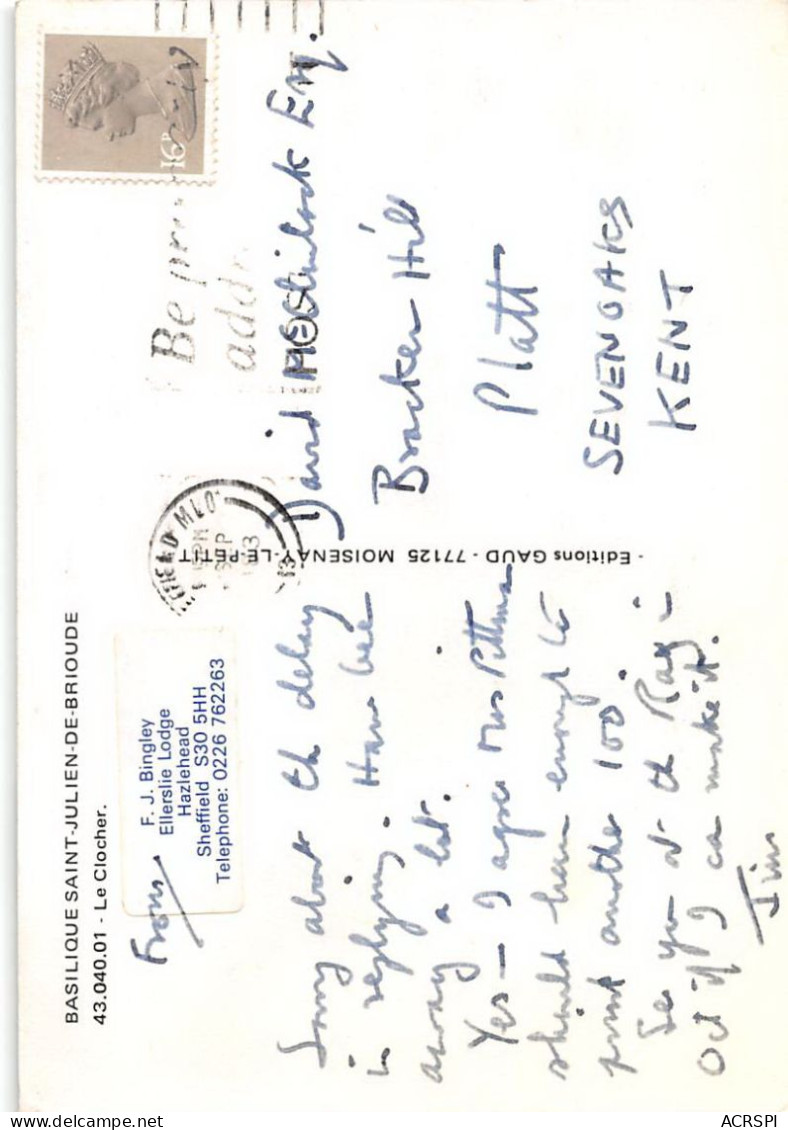 BASILIQUE SAINT-JULIEN-DE-BRIOUDE
43.040.01 - Le Clocher.
From
F. J. Bingley
Ellerslie Lodge
Hazlehead
Sheffield S30 5HH
Telephone: 0226 762263
Sorry about the delay
in replying. Have bee
away a lot.
Yes - I agree Mrs
should have enough to
print another 100.
See you at the Ray -
Oct if I can make it.
Jim
- Editions GAUD - 77125 MOISENAY-LE-PETIT
16P
Be
add
POST
David Esq.
Bracken Hill
Platt
SEVENOAKS
KENT
ACRSPI